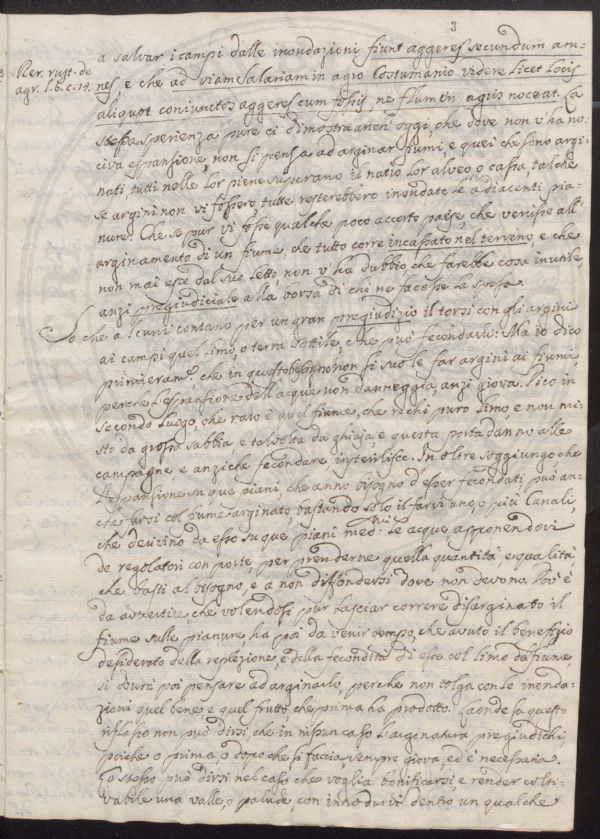 3
a salvar i campi dalle inondazioni fiunt aggeres secundum am-
Rer. rust. de
agr. l. 6. c. 14.
nes, e che ad viam Salariam in agro Costumanio videre licet locis
aliquot coniunctos aggeres cum fossis, ne flumen agris noceat. La
stessa sperienza pure ci dimostra anch' oggi, che dove non v'ha no-
civa espansione, non si pensa ad arginar fiumi, e quei che sono argi-
nati, tutti nelle lor piene superano il natio lor alveo, o cassa, talche
se argini non vi fossero, tutte resterebbero inondate le adiacenti pia-
nure. Che se pur vi fosse qualche poco accorto paese, che venisse all'
arginamento di un fiume, che tutto corre incassato nel terreno, e che
non mai esce dal suo letto, non v'ha dubbio, che farebbe cosa inutile,
anzi pregiudiciale alla borsa di chi ne facesse la spesa.
So che alcuni contano per un gran pregiudizio il torsi con gli argini
ai campi quel limo, o terra sottile, che può fecondarli: Ma io dico
primieram.e che in questo bisogno non si suole far argini ai fiumi,
perche l'espansione dell'acque non danneggia, anzi giova. Dico in
secondo luogo, che raro è quel fiume, che rechi puro limo, e non mi-
sto da grossa sabbia, e talvolta da ghiaja, e questa porta danno alle
campagne, e anziche fecondare, insterilisce. In oltre soggiungo, che
l'espansione su que' piani, che anno bisogno d'esser fecondati, può an-
che farsi col fiume arginato, bastando solo il farvi uno, o più Canali,
che derivino da esso su que' piani med.mi le acque, apponendovi
de' regolatori con porte, per prenderne quella quantità, e qualità,
che basti al bisogno, e a non diffondersi dove non devono. Poi è
da avvertire, che volendosi pur lasciar correre disarginato il
fiume sulle pianure, ha poi da venir tempo, che avuto il benefizio
desiderato della replezione, e della fecondità di esse col limo del fiume,
si dovrà poi pensare ad arginarlo, perche non tolga con le inonda-
zioni quel bene, e quel frutto, che prima ha prodotto. Laonde su questo
riflesso non può dirsi, che in nissun caso l'arginatura pregiudichi,
poiche o prima, o dopo che si faccia, sempre giova, ed è necessaria.
Lo stesso può dirsi nel caso, che voglia bonificarsi, e render colti-
vabile una valle, o palude, con introdurvi dentro un qualche